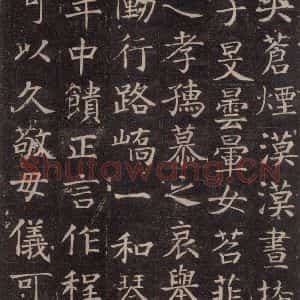 蒼煙漠漠晝
子旻曇暈女苕
孝孺慕之哀舉
慟行路嶠一和琴
年中饋正言作程
可以久敬毋儀可
Shufawang.CN